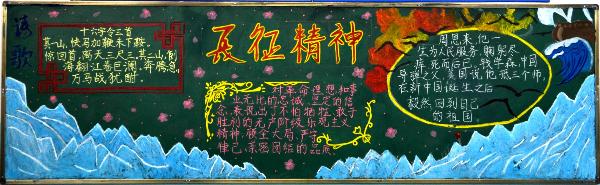 诗歌
十六字令三首
其一山,快马加鞭未下鞍。
你回首,离天三尺三。其二山,倒
海翻江卷巨澜。奔腾急,
万马战犹酣。
长征精神
对革命理想和事
业无比的忠诚、坚定的信
念,表现出了不怕牺牲,敢于
胜利的无产阶级乐观主义
精神,顾全大局、严守
律己、亲密团结的品质。
周恩来,他一
生为人民服务,鞠躬尽
瘁,死而后已。钱学森,中国
导弹之父,美国说,他抵三个师,
在新中国诞生之后
毅然回到自己
的祖国。